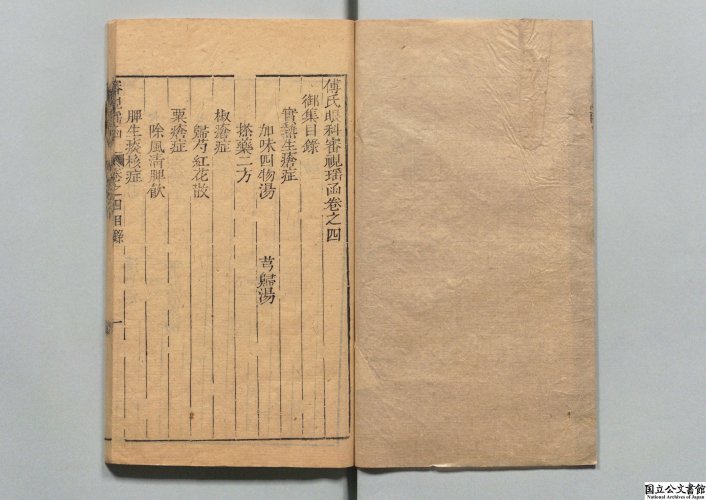 傅氏眼科審視瑶函卷之四
御集目錄
實熱生瘡症
加味四物湯　芎歸湯
搽藥二方
椒瘡症
歸芍紅花散
粟瘡症
除風清脾飲
脾生痰核症
審視瑶函　卷之四目錄　一
国立公文書館
National Archives of Japan